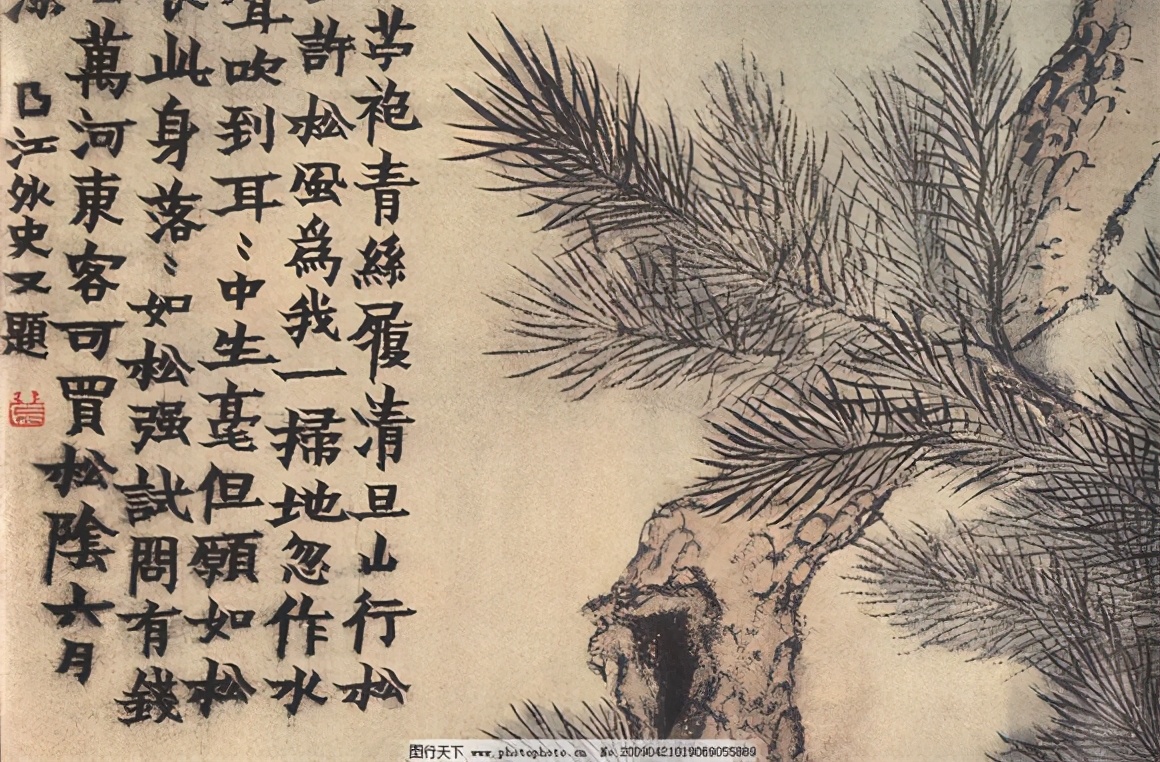 苧袍青絲履清旦山行松
許松風為我一掃地忽作水
吹到耳〻中生毫但願如松
此身落〻如松强試問有錢
萬河東客可買松陰六月
江外史又題
图行天下 www.photophoto.cn